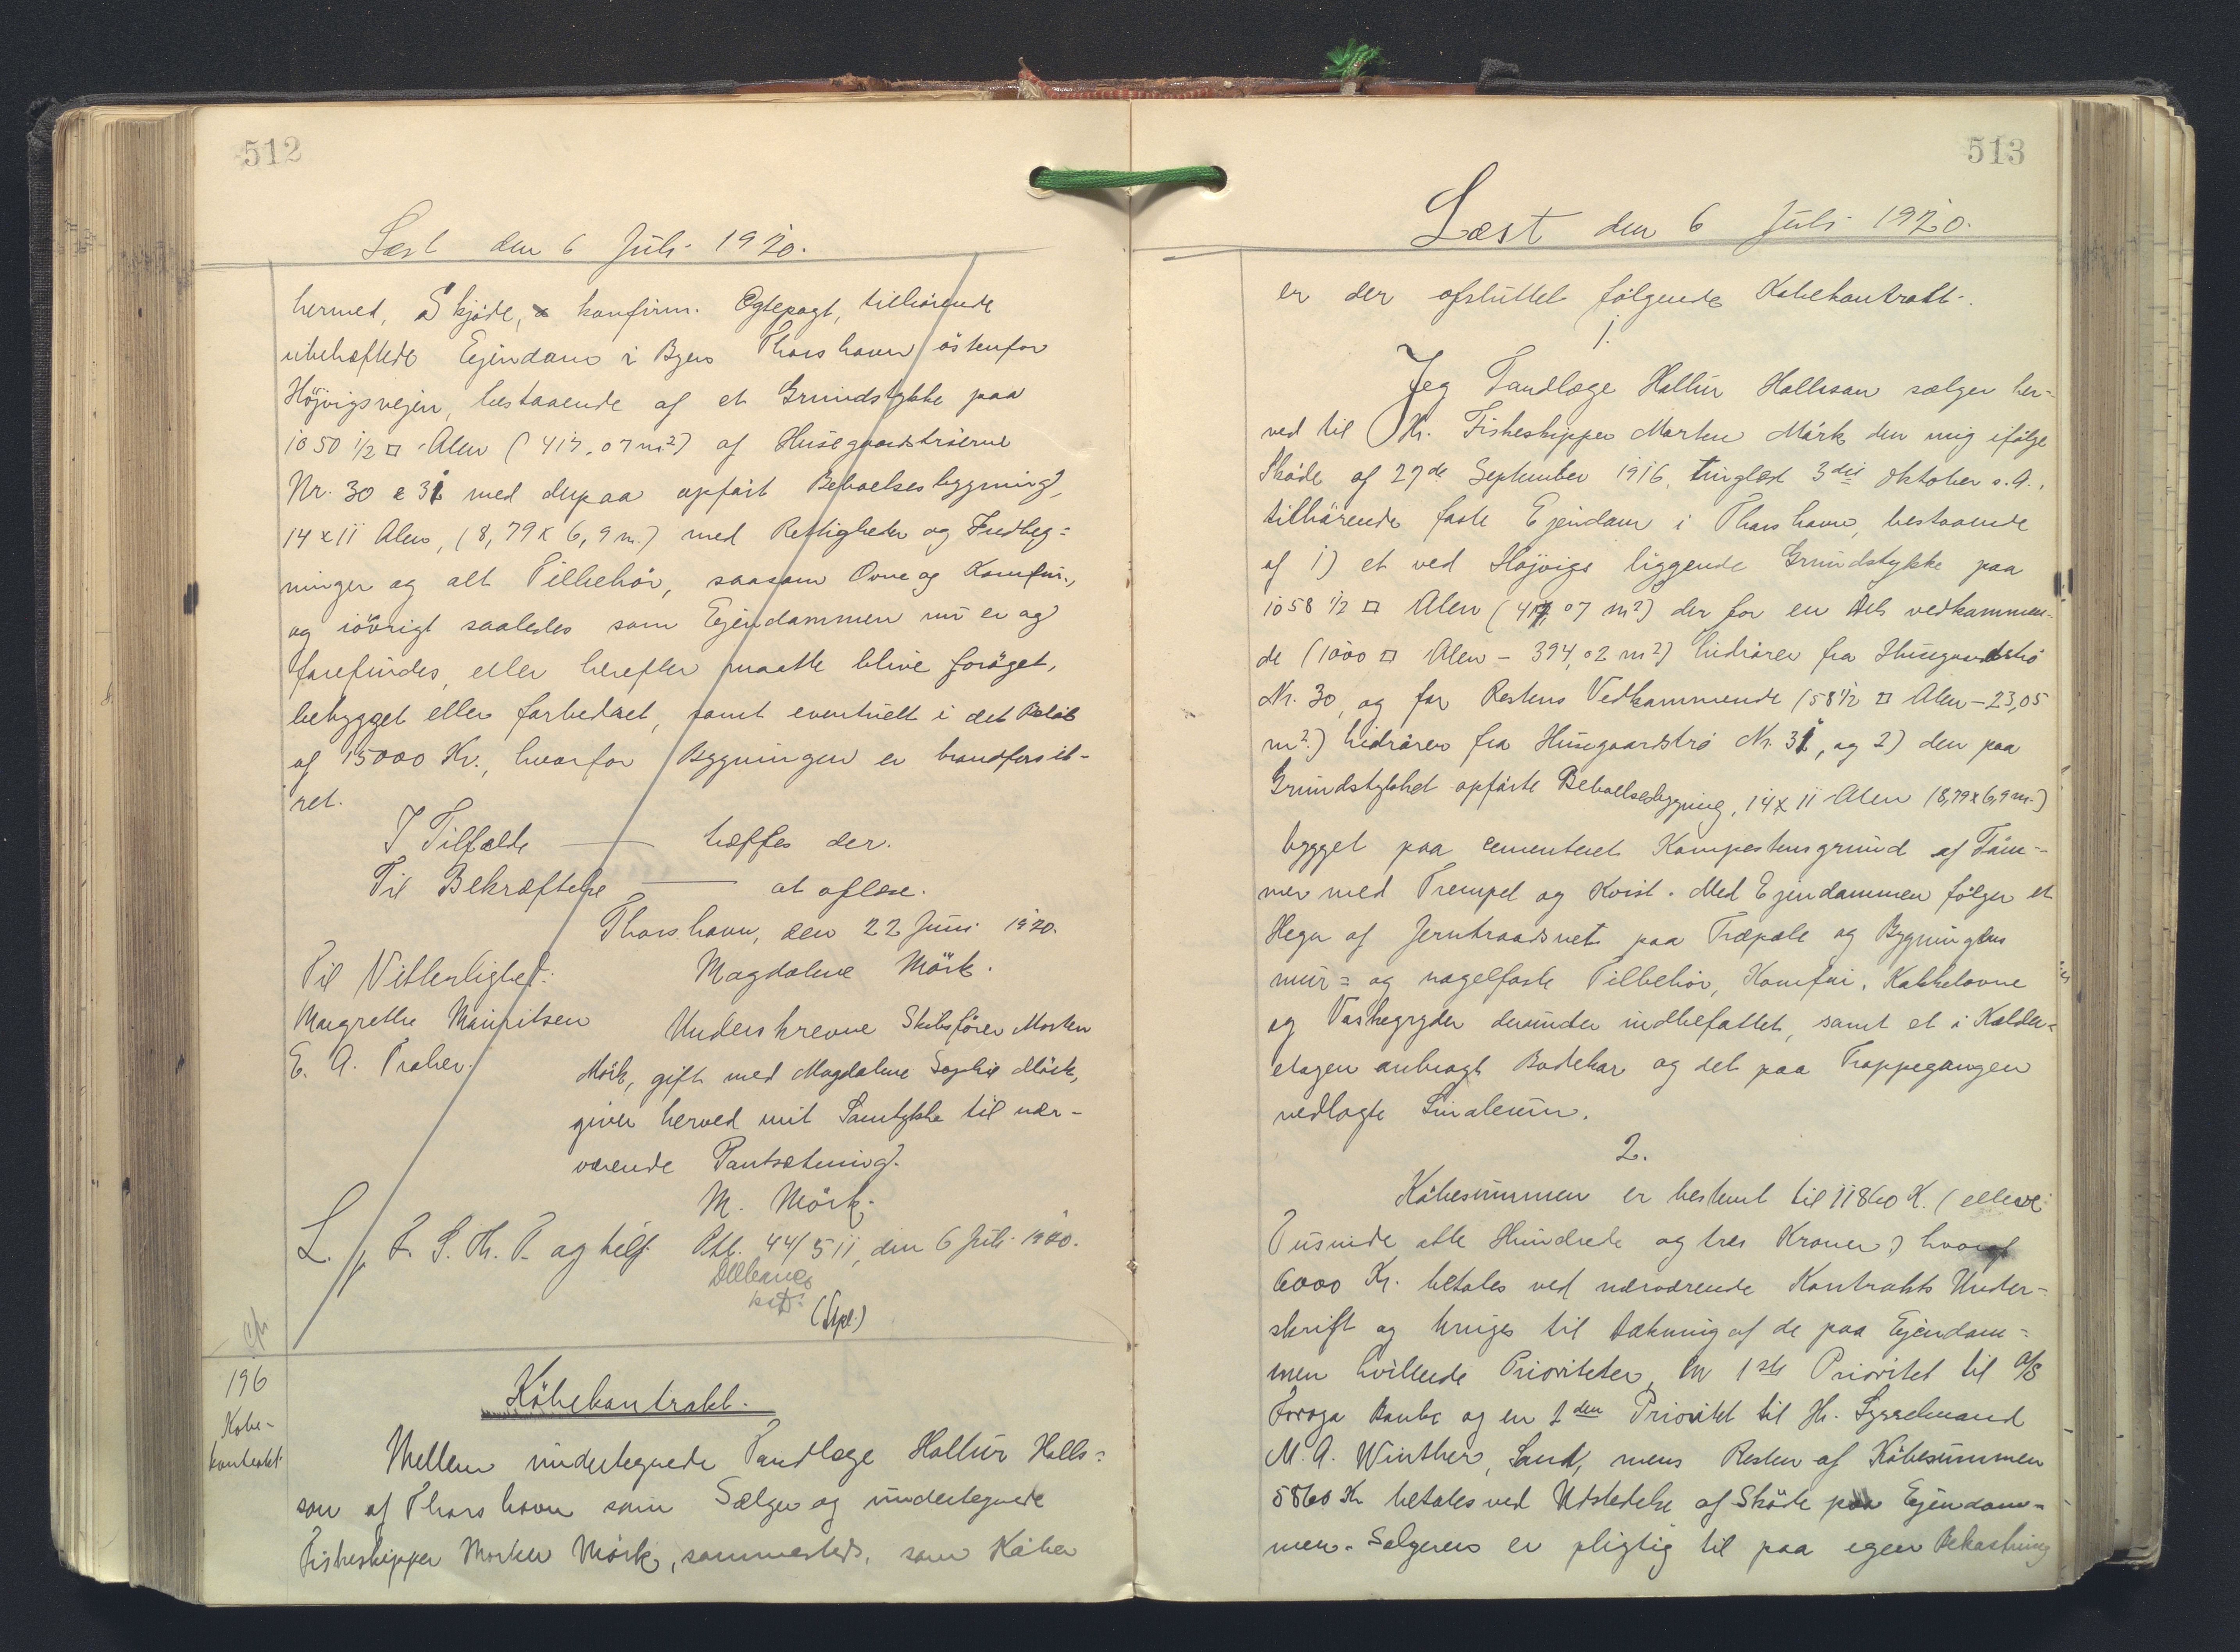 512
Læst den 6 Juli 1920.
hermed, Skjöde, konfirm. Egtepagt, tilhörende
ubehæftede Ejendom i Byen Thorshavn östenfor
Höjvigsvejen, bestaaende af et Grundstykke paa
1050 1/2 □ Alen (417,07 m²) af Husegaardströerne
Nr. 30 & 31 med derpaa opfört Beboelsesbygning,
14 x 11 Alen, (8,79 x 6,9 m.) med Rettigheder og Indheg=
ninger og alt Tilbehör, saasom Ovne og Komfur,
og iövrigt saaledes som Ejendommen nu er og
forefindes, eller herefter maatte blive foröget,
bebygget eller forbedret, samt eventuelt i det Belöb
af 15000 Kr., hvorfor Bygningen er brandforsik-
ret.
I Tilfælde — træffes der.
Til Bekræftelse — at aflæse.
Thorshavn, den 22 Juni 1920.
Til Vitterlighed: Magdalene Mörk.
Margrethe Mauritsen Underskrevne Skibsförer Morten
E. A. Præher. Mörk, gift med Magdalene Sophie Mörk,
giver herved mit Samtykke til nær-
værende Pantsætning.
M. Mörk.
L. p. F. S. Th. P. og tilf. Ptb. 44/511, den 6 Juli 1920.
(Spl.)
196
Köbe-
kontrakt
Köbekontrakt.
Mellem undertegnede Tandlæge Hallur Halls=
son af Thorshavn som Sælger og undertegnede
Fiskeskipper Morten Mörk, sammesteds, som Köber
513
Læst den 6 Juli 1920.
er der afsluttet fölgende Köbekontrakt.
1.
Jeg Tandlæge Hallur Hallsson sælger her=
ved til Hr. Fiskeskipper Morten Mörk den mig ifölge
Sköde af 27de September 1916, tinglæst 3die Oktober s.A.,
tilhörende faste Ejendom i Thorshavn, bestaaende
af 1) et ved Höjvigs liggende Grundstykke paa
1058 1/2 □ Alen (417,07 m²) der for en Dels vedkommen-
de (1000 □ Alen - 394,02 m²) hidrörer fra Husegaardströ
Nr. 30, og for Restens Vedkommende (58 1/2 □ Alen - 23,05
m².) hidrörer fra Husegaardströ Nr. 31, og 2) den paa
Grundstykket opförte Beboelsesbygning, 14 x 11 Alen (8,79 x 6,9 m.)
bygget paa cementeret Kampestensgrund af Töm-
mer med Trempel og Kvist. Med Ejendommen fölger et
Hegn af Jerntraadsnet paa Træpæle og Bygningens
mur= og nagelfaste Tilbehör, Komfur, Kakkelovne
og Vaskegryder derunder indbefattet, samt et i Kælder=
etagen anbragt Badekar og det paa Trappegangen
vedlagte Linoleum.
2.
Köbesummen er bestemt til 11860 K. (elleve
Tusinde otte Hundrede og tres Kroner) hvoraf
6000 Kr. betales ved nærværende Kontrakts Under=
skrift og bruges til Dækning af de paa Ejendom=
men hvilende Prioriteter, en 1ste Prioritet til A/S
Föroya Banki og en 2den Prioritet til Hr. Sysselmand
M. A. Winther, Sand, mens Resten af Köbesummen
5860 Kr betales ved Udstedelse af Sköde paa Ejendom=
men. Sælgeren er pligtig til paa egen Bekostning